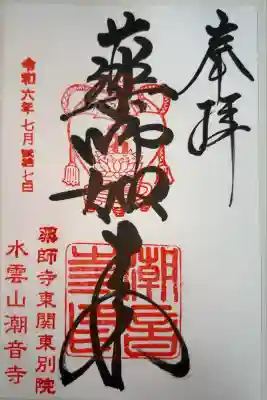 奉拝
薬師如来
令和六年七月 七日
潮音寺
薬師寺東関東別院
水雲山潮音寺